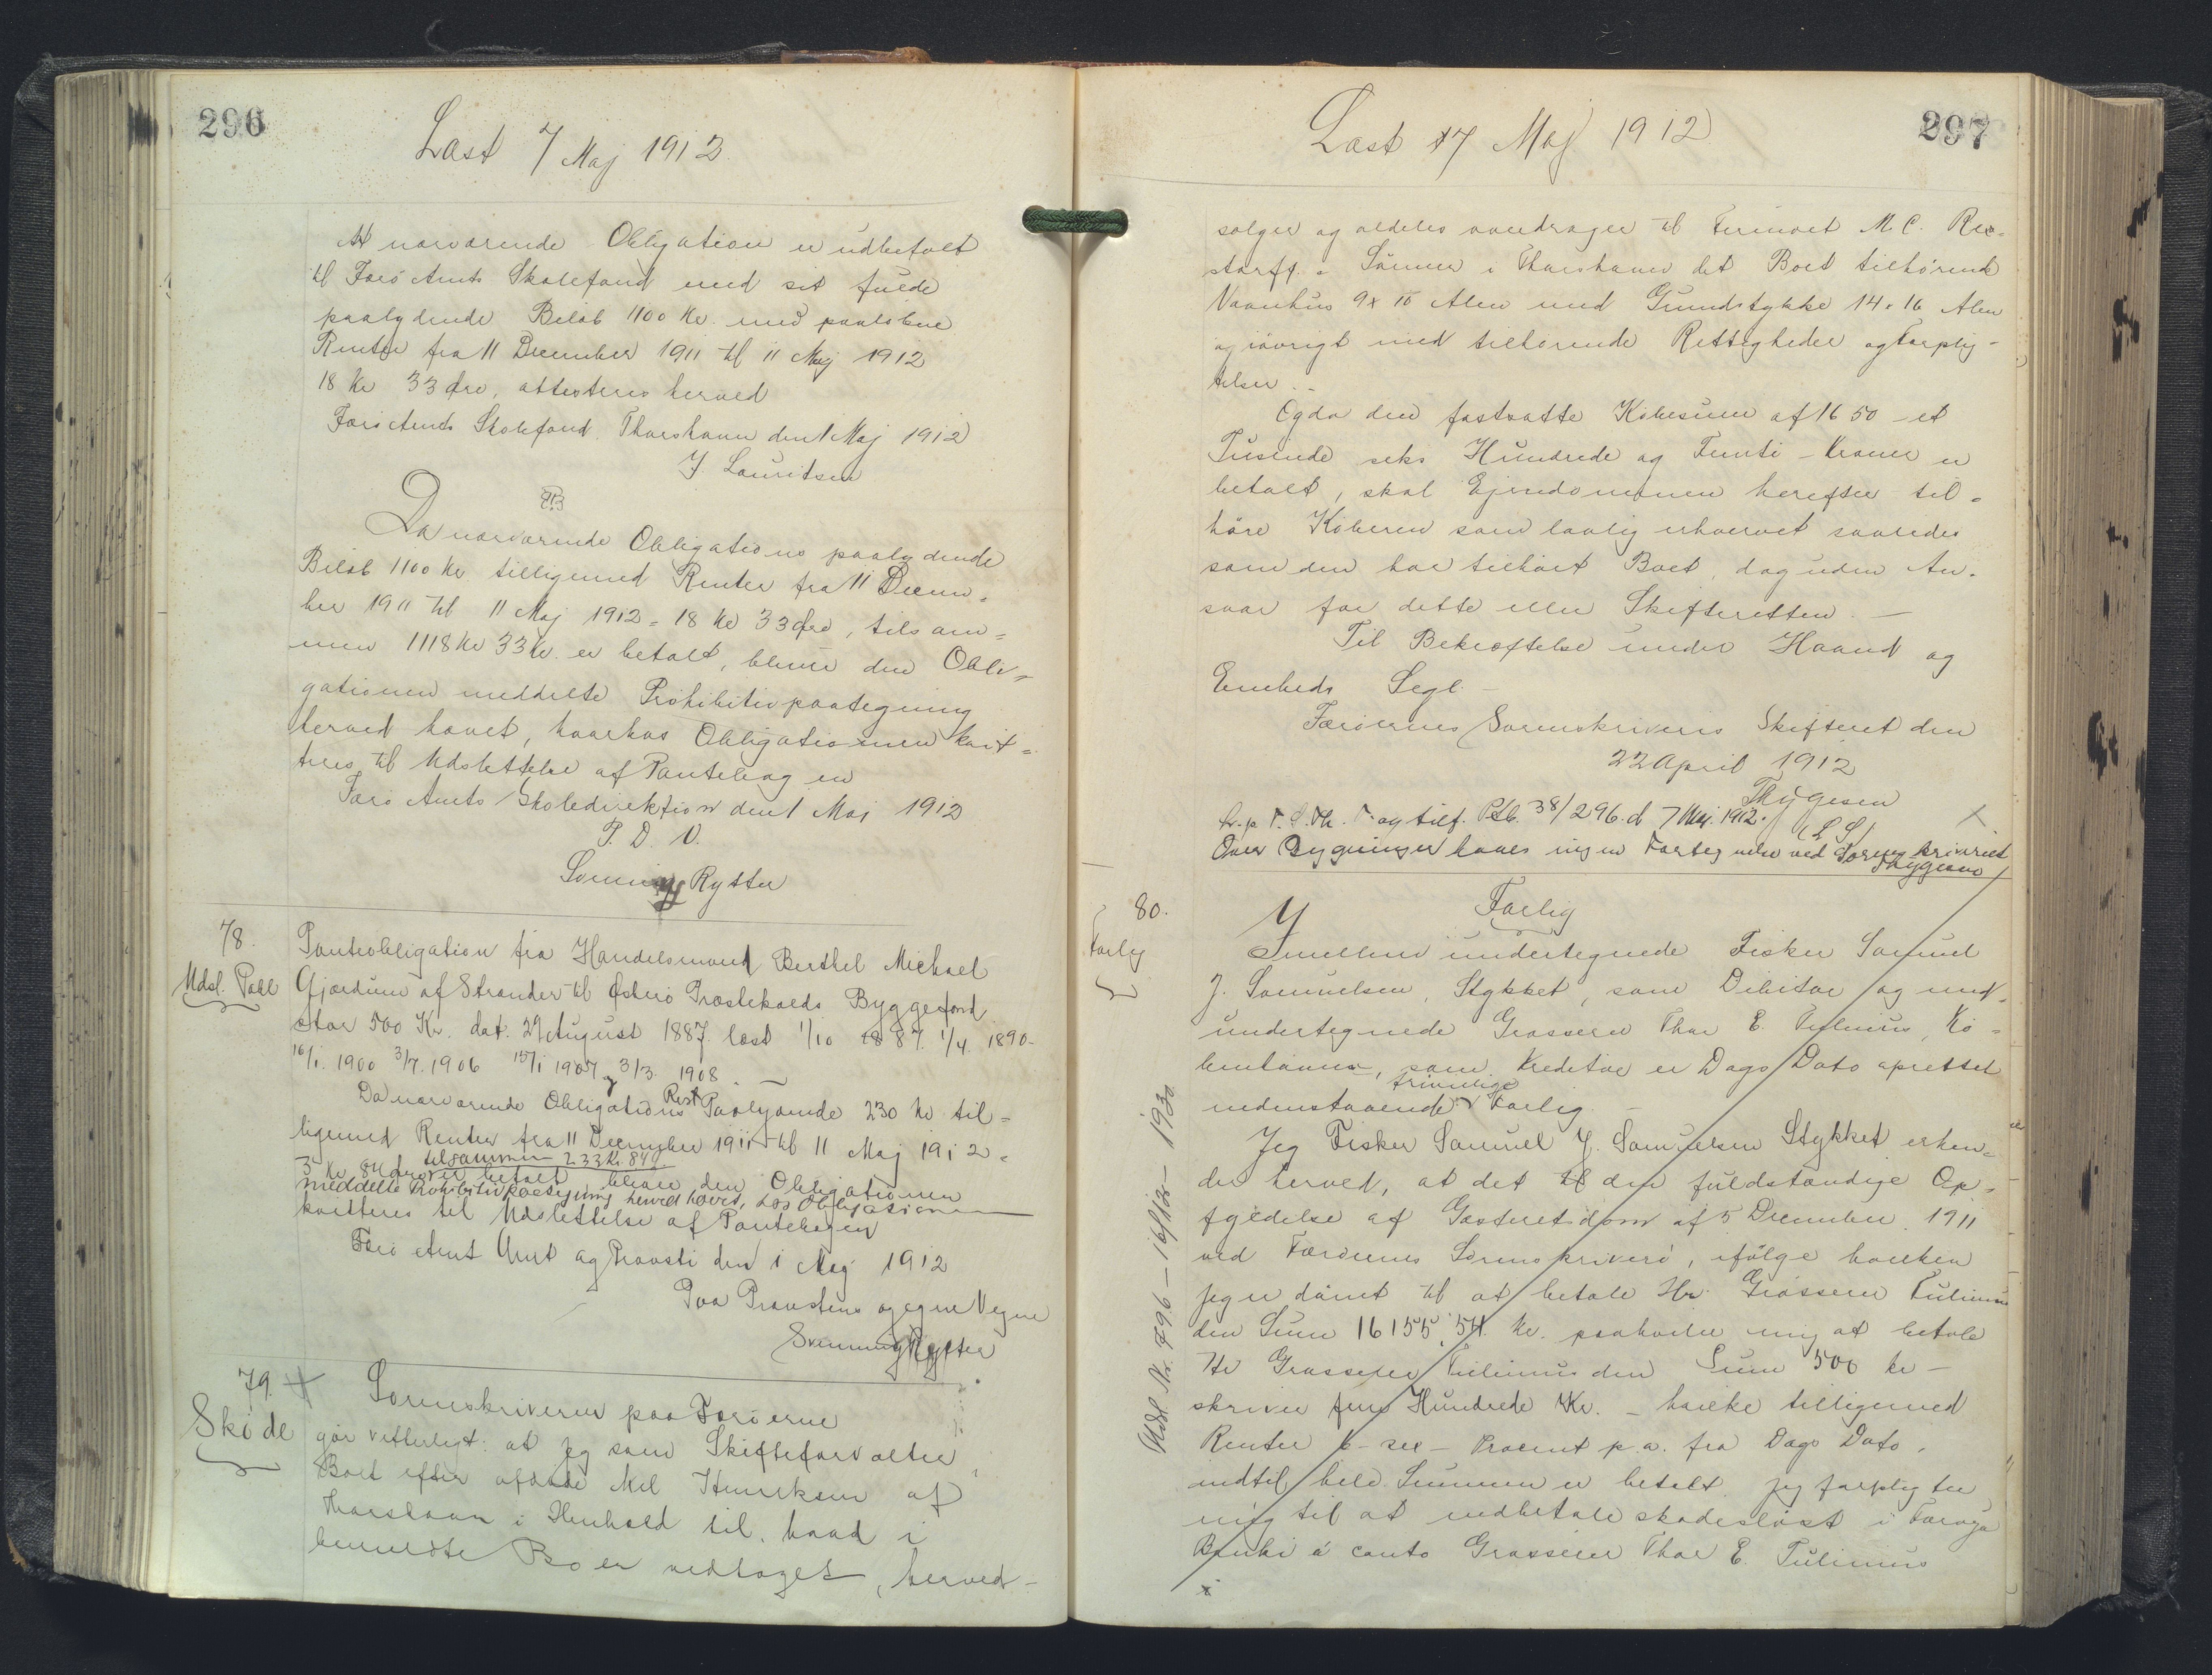 296
Læst 7 Maj 1912.
At nærværende Obligation er udbetalt
til Færø Amts Skolefond med sit fulde
paalydende Beløb 1100 Kr. med paaløbne
Renter fra 11 December 1911 til 11 Maj 1912
18 Kr 33 Øre, attesteres herved
Færø Amts Skolefond Thorshavn den 1 Maj 1912
J. Lauritsen
Da nærværende Obligations paalydende
Beløb 1100 Kr. tilligemed Renter fra 11 Decem=
ber 1911 til 11 Maj 1912 = 18 Kr 33 Øre, tilsam=
men 1118 Kr 33 Kr. er betalt, bliver den Obli=
gationen meddelte Prohibitivpaategning
herved hævet, hvorhos Obligationen kvit=
teres til Udslettelse af Pantebogen
Færø Amts Skoledirektion den 1 Maj 1912
P. D. V.
Svenning Rytter
78.
Udsl. Pobl
Panteobligation fra Handelsmand Berthel Michael
Gjærdum af Strænder til Østerø Præstekalds Byggefond
stor 500 Kr. dat. 29 August 1887. læst 1/10 1887. 1/4. 1890.
16/1. 1900 3/7. 1906 15/1 1907 og 3/3. 1908. —
Da nærværende Obligations Rest Paalydende 230 Kr til=
ligemed Renter fra 11 December 1911 til 11 Maj 1912 =
3 Kr 84 Øre tilsammen 233 Kr. 84 Ø er betalt bliver den Obligationen
meddelte Prohibitivpaategning herved hævet, hos Obligationen
kvitteres til Udslettelse af Pantebogen
Færø Amt Amt og Provsti den 1 Maj 1912
Paa Provstens og egne Vegne
Svenning Rytter
79.
Skøde
Sorenskriveren paa Færøerne
gør vitterligt: at jeg som Skifteforvalter
Boet efter afdøde Mel Henriksen af
Thorshavn i Henhold til, hvad i
bemeldte Bo er vedtaget, herved-
297
Læst 17 Maj 1912
sælger og aldeles overdrager til Firmaet M. C. Res=
storff. & Sønner i Thorshavn det Boet tilhørende
Vaanhus 9 x 10 Alen med Grundstykke 14 x 16 Alen
og iøvrigt med tilhørende Rettigheder og Forplig-
telser. -
Og da den fastsatte Købesum af 1650 - et
Tusinde seks Hundrede og Femti - Kroner er
betalt, skal Ejendommen herefter til=
høre Køberen som lovlig erhvervet saaledes
som den har tilhørt Boet, dog uden An=
svar for dette eller Skifteretten. —
Til Bekræftelse under Haand og
Embeds Segl. -
Færøernes Sorenskriveris Skifteret den
22 April 1912
Thygesen
(L S)
og tilf. Ptb. 38/296. d 7 Maj. 1912.
Over Bygninger haves ingen Fortegnelse ved Sorenskriveriet
Thygesen
80.
Forlig
Forlig
Imellem undertegnede Fisker Samuel
J. Samuelsen, Stykket, som Debitor og med=
undertegnede Grosserer Thor E. Tulinius, Kø=
benhavn, som Kreditor er Dags Dato oprettet
nedenstaaende frivillige Forlig. —
Jeg Fisker Samuel J. Samuelsen Stykket erken=
der herved, at det til den fuldstændige Op=
fyldelse af Gæsteretsdom af 5 December 1911
ved Færøernes Sorenskriveri, ifølge hvilken
jeg er dømt til at betale Hr. Grosserer Tulinius
den Sum 16155,54. Kr. paahviler mig at betale
Hr Grosserer Tulinius den Sum 500 Kr —
skriver fem Hundrede Kr. — hvilke tilligemed
Renter 6 - sex - Procent p.a. fra Dags Dato,
indtil hele Summen er betalt. Jeg forpligter
mig til at indbetale skadesløst i Føroya
Banki á conto Grosserer Thor E. Tulinius
Udsl. Nr. 796 - 16/12 - 1930